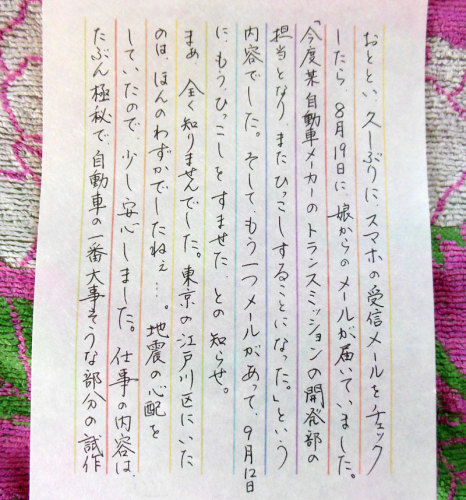 おととい、久しぶりに、スマホの受信メールをチェック
したら、8月19日に、娘からのメールが届いていました。
「今度某自動車メーカーのトランスミッションの開発部の
担当となり、またひっこしすることになった。」という
内容でした。そして、もう一つメールがあって、9月12日
に、もうひっこしをすませた、との知らせ。
まぁ、全く知りませんでした。東京の江戸川区にいた
のは、ほんのわずかでしたねぇ…。地震の心配を
していたので、少し安心しました。仕事の内容は、
たぶん極秘で、自動車の一番大事そうな部分の試作